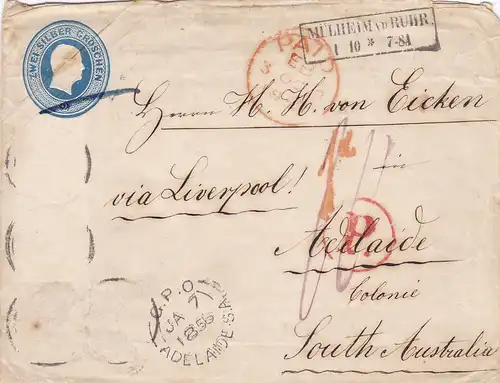 ZWEI SILBER GROSCHEN
MÜLHEIM A/D RUHR.
1 10 * 7-8A
PAID
Herrn H. H. von Eicken
in
via Liverpool!
Adelaide
P.
Colonie
South Australia
G.P.O
JA 7
1856
ADELAIDE S.A.